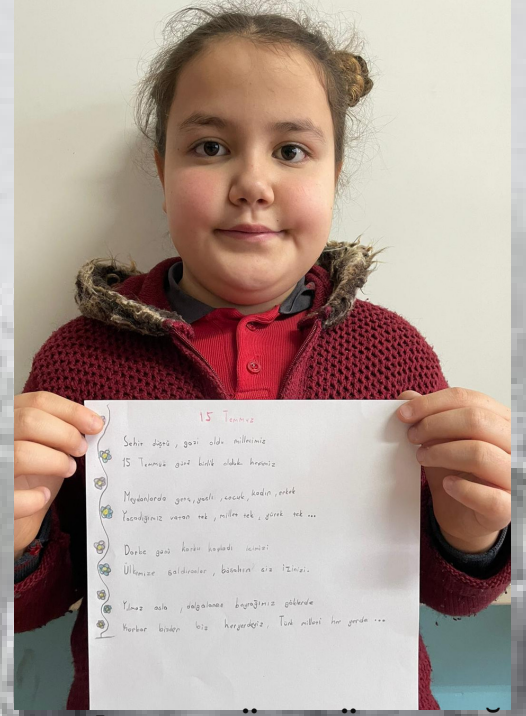 15 Temmuz
Şehit düştü, gazi oldu milletimiz
15 Temmuz günü birlik olduk hepimiz
Meydanlarda genç, yaşlı, çocuk, kadın, erkek
Yaşadığımız vatan tek, millet tek, yürek tek ...
Darbe günü korku kapladı içimizi
Ülkemize saldıranlar, siz
Yılmaz asla, dalgalanan bayrağımız göklerde
Korkar bizden biz heryerdeyiz. Türk milleti her yerde ...